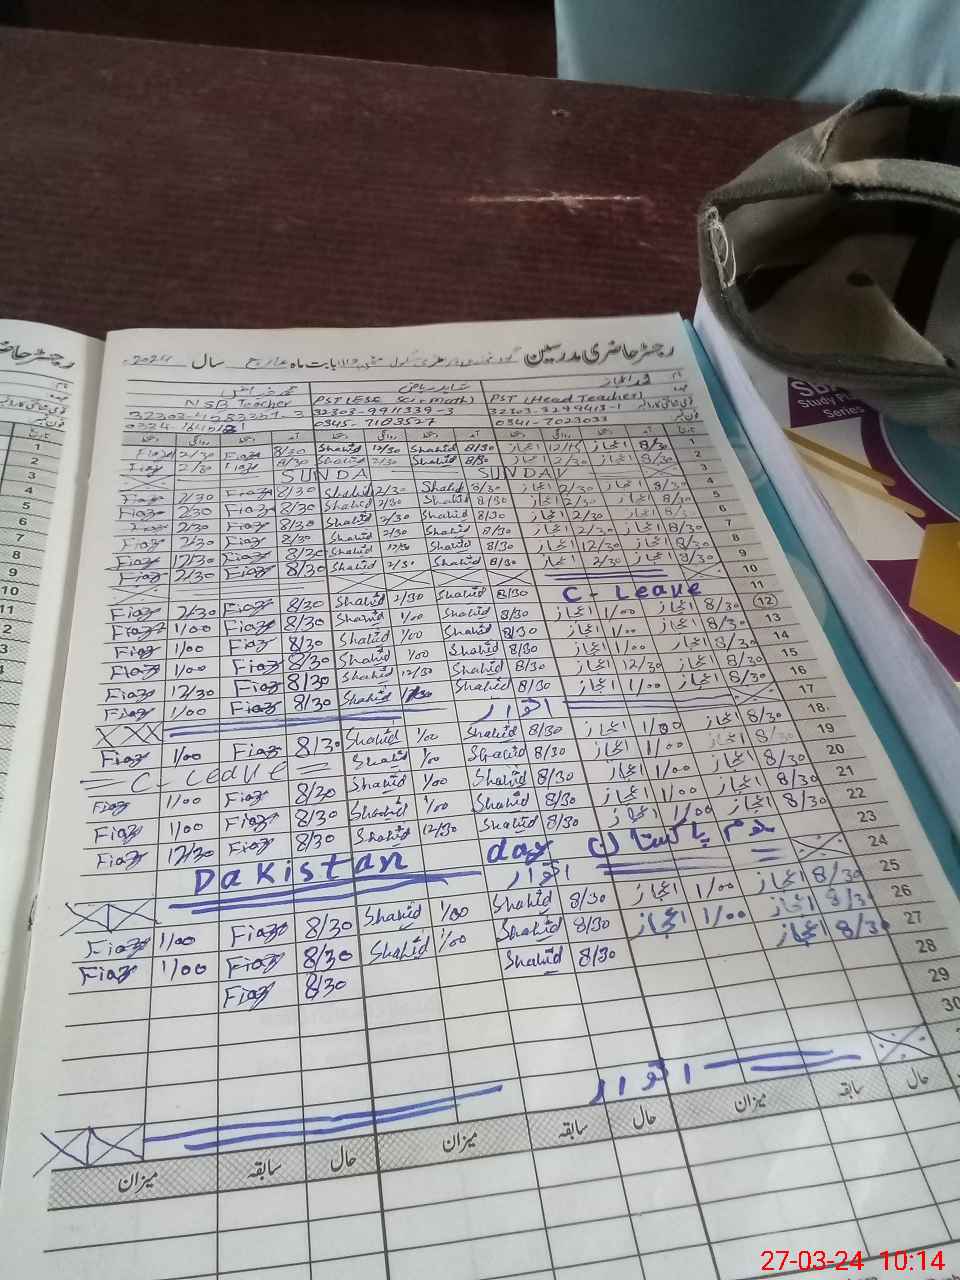 رجسٹر حاضری مدرسین بابت ماہ مارچ سال 2024
NSB Teacher PST (ESE Sci-Math) PST (Head Teacher)
32303-9911339-3 32303-3299413-1
0345-7183527 0341-7023033
1 8/30 اعجاز 12/15 اعجاز 8/30 Shahid 12/30 Shahid 8/30 Fiaz 2/30 Fiaz
2 8/30 اعجاز 2/30 اعجاز 8/30 Shahid 2/30 Shahid 8/30 Fiaz 2/30 Fiaz
3 SUNDA SUNDA
4 8/30 اعجاز 2/30 اعجاز 8/30 Shahid 2/30 Shahid 8/30 Fiaz 2/30 Fiaz
5 8/30 اعجاز 2/30 اعجاز 8/30 Shahid 2/30 Shahid 8/30 Fiaz 2/30 Fiaz
6 8/30 اعجاز 2/30 اعجاز 8/30 Shahid 2/30 Shahid 8/30 Fiaz 2/30 Fiaz
7 8/30 اعجاز 2/30 اعجاز 8/30 Shahid 2/30 Shahid 8/30 Fiaz 2/30 Fiaz
8 8/30 اعجاز 12/30 اعجاز 8/30 Shahid 12/30 Shahid 8/30 Fiaz 12/30 Fiaz
9 8/30 اعجاز 2/30 اعجاز 8/30 Shahid 2/30 Shahid 8/30 Fiaz 2/30 Fiaz
10
11 C-Leave 8/30 Shahid 2/30 Shahid 8/30 Fiaz 2/30 Fiaz
12 8/30 اعجاز 1/00 اعجاز 8/30 Shahid 1/00 Shahid 8/30 Fiaz 1/00 Fiaz
13 8/30 اعجاز 1/00 اعجاز 8/30 Shahid 1/00 Shahid 8/30 Fiaz 1/00 Fiaz
14 8/30 اعجاز 1/00 اعجاز 8/30 Shahid 1/00 Shahid 8/30 Fiaz 1/00 Fiaz
15 8/30 اعجاز 12/30 اعجاز 8/30 Shahid 12/30 Shahid 8/30 Fiaz 12/30 Fiaz
16 8/30 اعجاز 1/00 اعجاز 8/30 Shahid Shahid 8/30 Fiaz 1/00 Fiaz
17 اتوار
18 8/30 اعجاز 1/00 اعجاز 8/30 Shahid 1/00 Shahid 8/30 Fiaz 1/00 Fiaz
19 8/30 اعجاز 1/00 اعجاز 8/30 Shahid 1/00 Shahid C-Leave
20 8/30 اعجاز 1/00 اعجاز 8/30 Shahid 1/00 Shahid 8/30 Fiaz 1/00 Fiaz
21 8/30 اعجاز 1/00 اعجاز 8/30 Shahid 1/00 Shahid 8/30 Fiaz 1/00 Fiaz
22 8/30 اعجاز 1/00 اعجاز 8/30 Shahid 12/30 Shahid 8/30 Fiaz 12/30 Fiaz
23 یوم پاکستان Pakistan day
24 اتوار
25 8/30 اعجاز 1/00 اعجاز 8/30 Shahid 1/00 Shahid 8/30 Fiaz 1/00 Fiaz
26 8/30 اعجاز 1/00 اعجاز 8/30 Shahid 1/00 Shahid 8/30 Fiaz 1/00 Fiaz
27 8/30 اعجاز 8/30 Shahid 8/30 Fiaz
28
29
30
اتوار
حال سابقہ میزان حال سابقہ میزان حال سابقہ میزان
Study Pl
Series
27-03-24 10:14